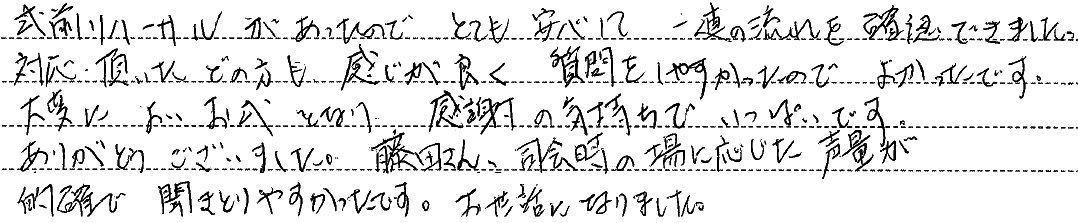 式前リハーサルがあったので とても 安心して 一連の流れを 確認できました。
対応頂いた どの方も 感じが良く 質問をしやすかったので よかったです。
大変に よい お式 となり 感謝の気持ちで いっぱいです。
ありがとう ございました。 藤田さん、司会時の場に応じた 声量が
的確で 聞きとりやすかったです。お世話に なりました。